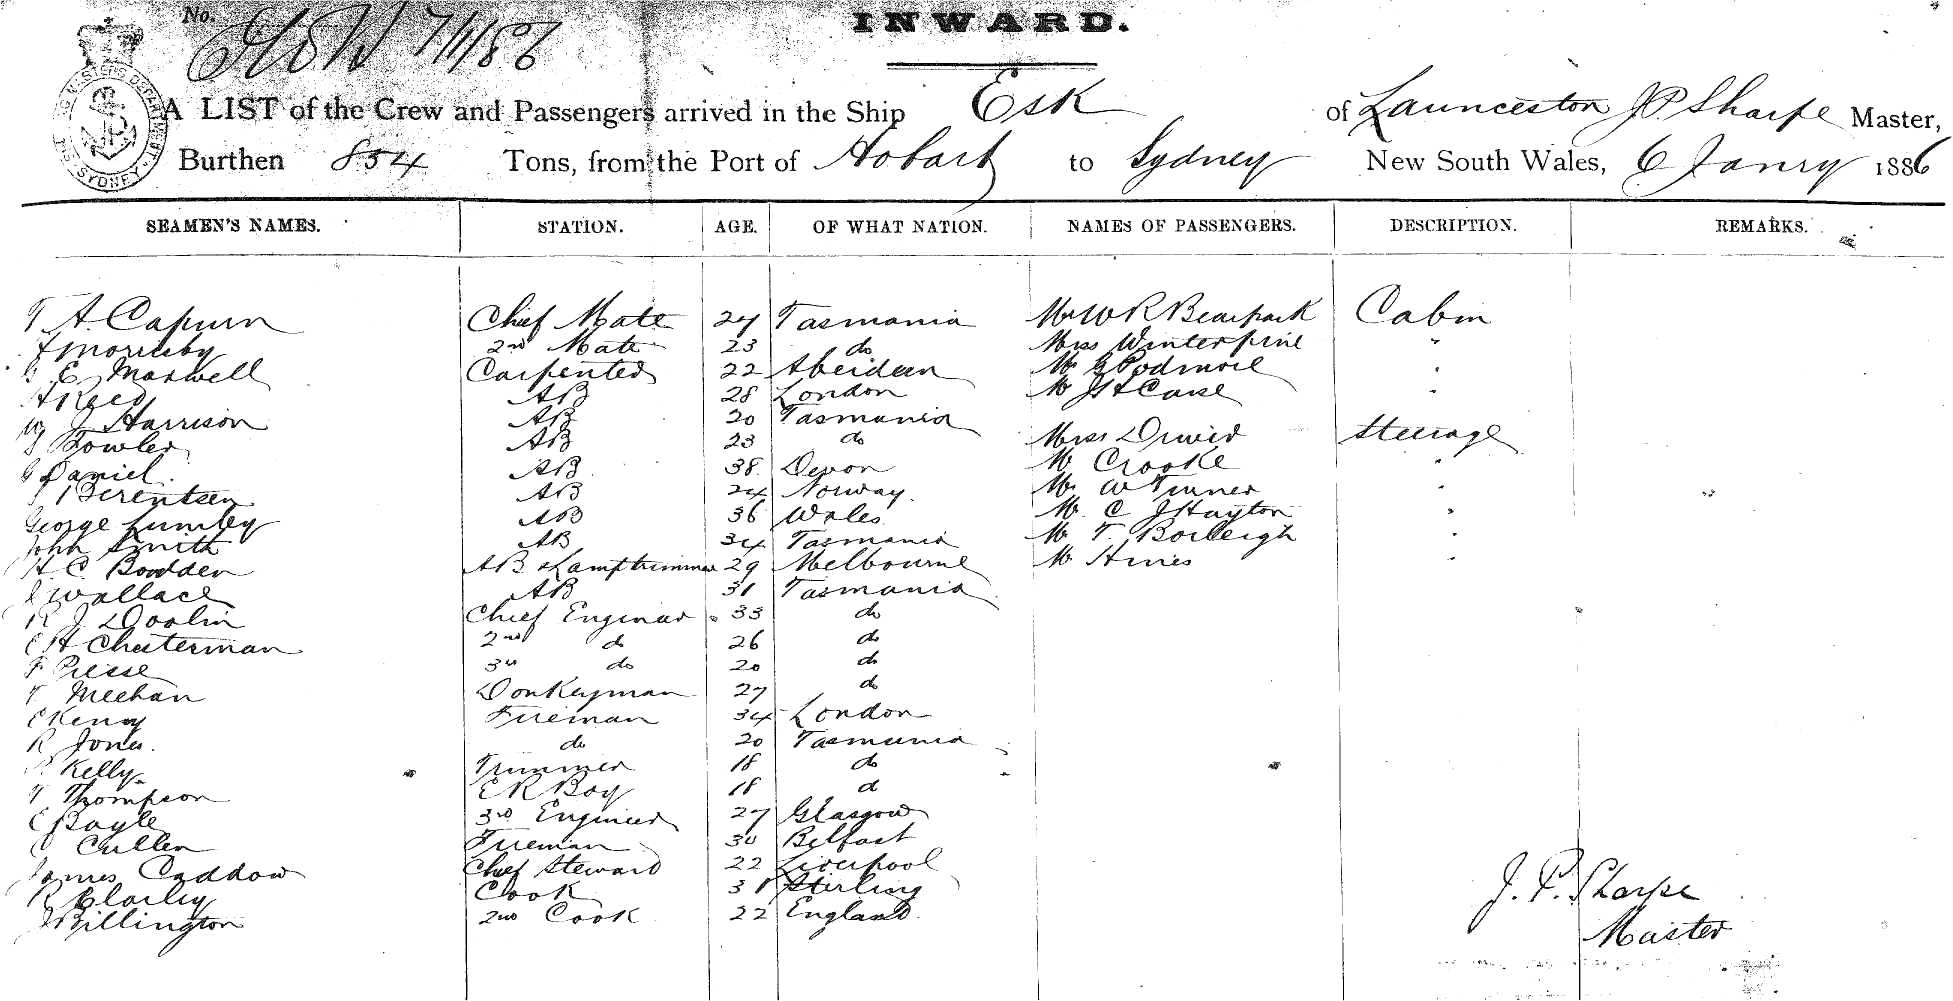 No.
7/1/86
INWARD.
A LIST of the Crew and Passengers arrived in the Ship Esk of Launceston J P Sharpe Master,
Burthen 854 Tons, from the Port of Hobart to Sydney New South Wales, 6 Janry 1886
SEAMEN'S NAMES. STATION. AGE. OF WHAT NATION. NAMES OF PASSENGERS. DESCRIPTION. REMARKS.
A. Capurn Chief Mate Tasmania Mr W R Bearpark Cabin
2nd Mate 23 do Miss Winterpine "
E Maxwell Carpenter 22 Aberdeen Mr Podmore "
A Reed AB 28 London Mr Case "
J Harrison AB 20 Tasmania
Fowler AB 23 do Miss Steerage
G Daniel. AB 38 Devon Mr Crooke "
Berentsen AB 24 Norway. Mr W Turner "
George Lumley AB 36 Wales Mr C J Hayton "
John Smith AB 34 Tasmania Mr T. Borleigh "
H. C Boodden AB & Lamptrimmer 29 Melbourne Mr Hines "
J Wallace AB 31 Tasmania
R J Doolin Chief Engineer 33 do
C H Chesterman 2nd do 26 do
F Piesse 3rd do 20 do
T Meehan Donkeyman 27 do
E Kenny Fireman 34 London
R Jones. do 20 Tasmania
P. Kelly Trimmer 18 do
T Thompson E R Boy 18 d
C Boyle 3rd Engineer 27 Glasgow
Cullen Fireman 30 Belfast
James Caddow Chief Steward 22 Liverpool
R Cook 31 Stirling
J Billington 2nd Cook 22 England.
J. P. Sharpe
Master